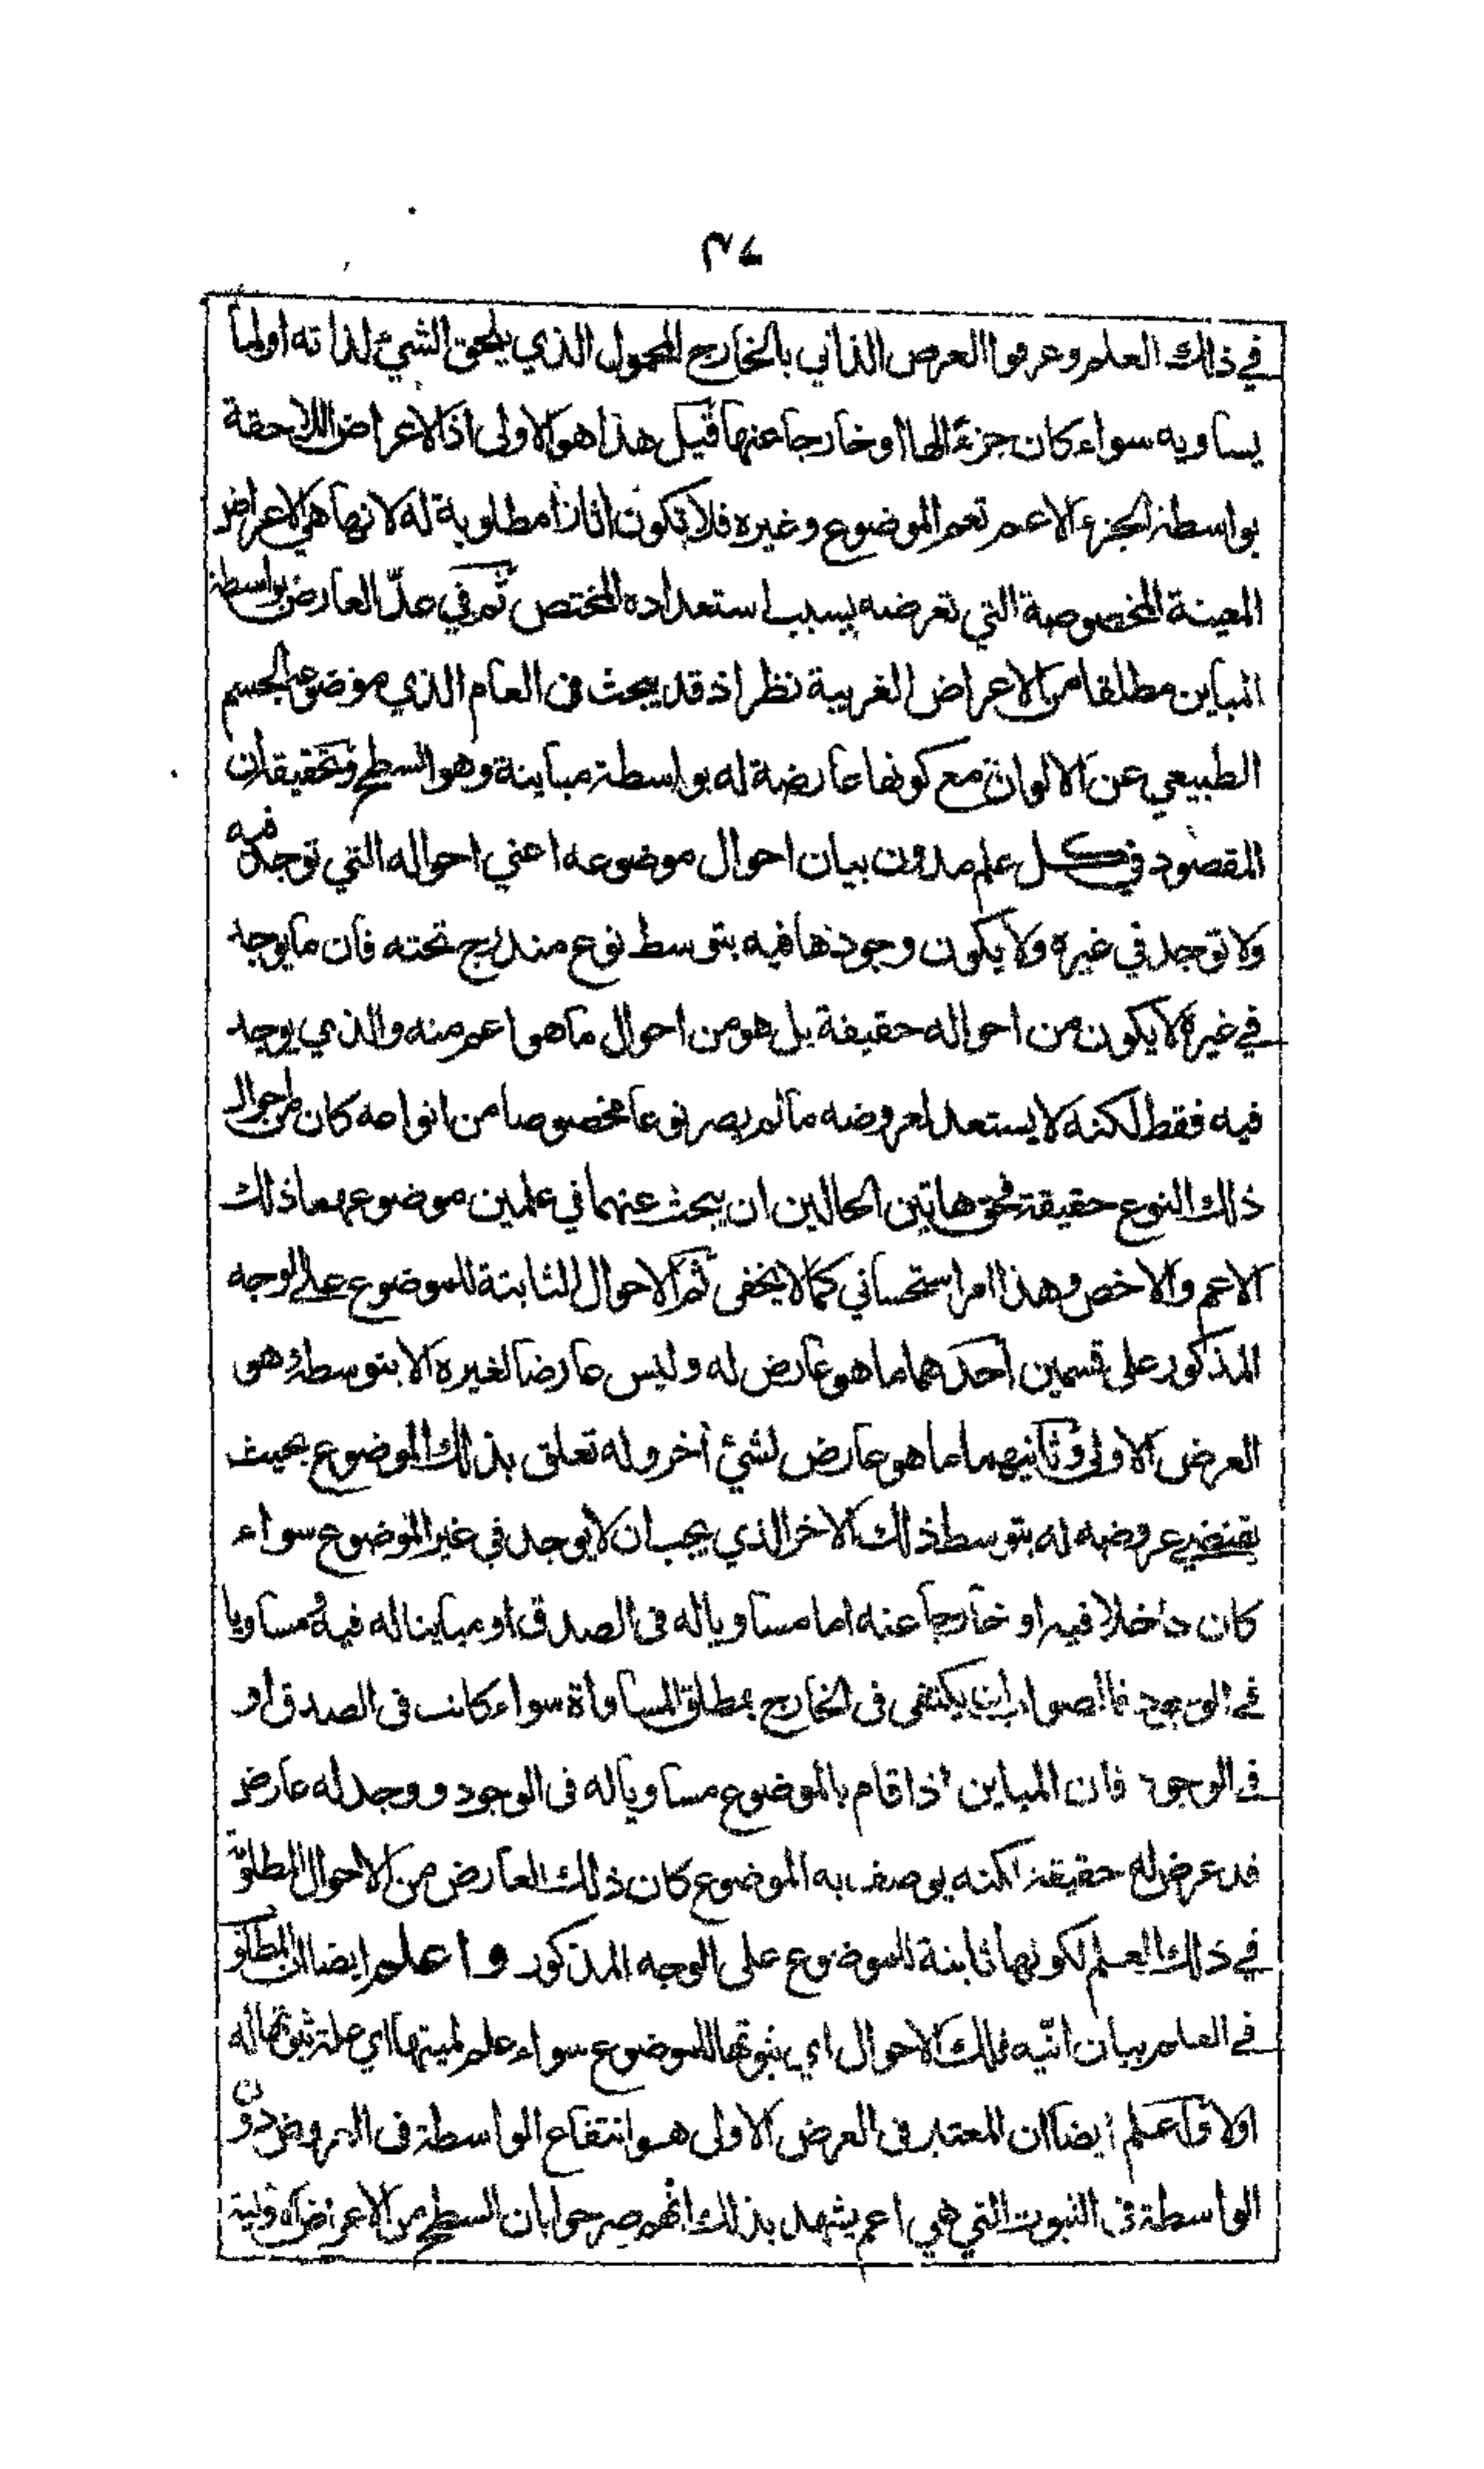 ٣٤
في ذلك العلم وعرفوا العرض الذاتي بالخارج المحمول الذي يلحق الشيء لذاته او لما
يساويه سواء كان جزءً الها او خارجا عنها قيل هذا هو الاولى اذ الاعراض اللاحقة
بواسطة الجزء الاعم تعم الموضوع وغيره فلا تكون اثارًا مطلوبة له لانها هي الاعراض
المعينة المخصوصة التي تعرضه بسبب استعداده المختص ثم في عدّ العارض بواسطة
المباين مطلقا من الاعراض الغريبة نظر اذ قد يبحث في العام الذي موضوعه الجسم
الطبيعي عن الالوان مع كونها عارضة له بواسطة مباينة وهو السطح وتحقيقه ان
المقصود في كل علم مدون بيان احوال موضوعه اعني احواله التي توجد فيه
ولا توجد في غيره ولا يكون وجودها فيه بتوسط نوع مندرج تحته فان ما يوجد
في غيره لا يكون من احواله حقيقة بل هو من احوال ما هو اعم منه والذي يوجد
فيه فقط لكنه لا يستعد لعروضه ما لم يصر نوعا مخصوصا من انواعه كان من احوال
ذلك النوع حقيقة فحق هاتين الحالين ان يبحث عنهما في علمين موضوعهما ذلك
الاعم والاخص وهذا امر استحساني كما لا يخفى ثم الاحوال الثابتة للموضوع على الوجه
المذكور على قسمين احدهما ما هو عارض له وليس عارضا لغيره الا بتوسطه وهو
العرض الاولى وثانيهما ما هو عارض لشيء آخر وله تعلق بذلك الموضوع بحيث
يقتضي عروضه له بتوسط ذلك الاخر الذي يجب ان لا يوجد في غير الموضوع سواء
كان داخلا فيه او خارجا عنه اما مساويا له فى الصدق او مباينا له فيه ومساويا
في الوجود فالصواب ان يكتفى فى الخارج بمطلق المساواة سواء كانت فى الصدق او
في الوجود فان المباين اذا قام بالموضوع مساويا له فى الوجود ووجد له عارض
قد عرض له حقيقة لكنه يوصف به الموضوع كان ذلك العارض من الاحوال المطلوبة
في ذلك العلم لكونها ثابتة للموضوع على الوجه المذكور واعلم ايضا ان المطلوب
في العلم بيان انّيه تلك الاحوال اي ثبوتها للموضوع سواء علم لميتها اي علة ثبوتها له
اولا واعلم ايضا ان المعتبر فى العرض الاولى هو انتفاء الواسطة فى العروض دون
الواسطة فى الثبوت التي هي اعم يشهد بذلك انهم صرحوا بان السطح من الاعراض الاولية